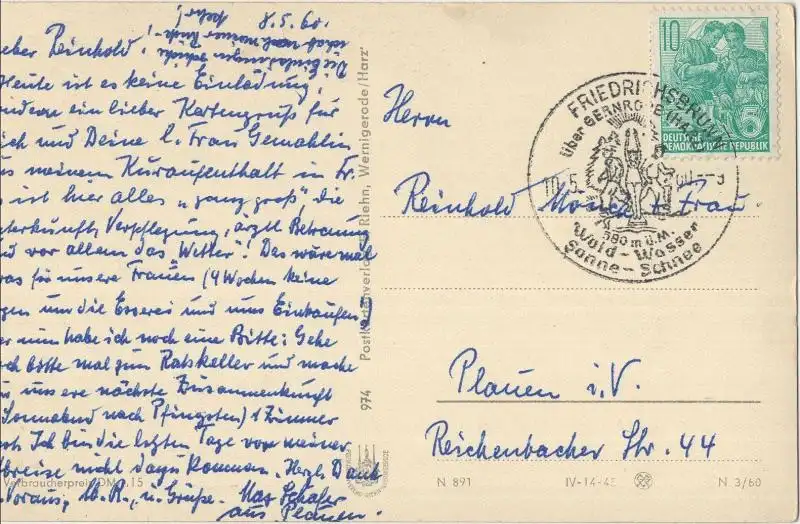 8.5.60.
Die Einladungen schickt
schon nach meiner Rück-
kehr!
eber Reinhold!
Heute ist es keine Einladung,
ndern ein lieber Kartengruß für
ich und Deine l. Frau Gemahlin
us meinem Kuraufenthalt in Fr.
s ist hier alles „ganz groß" die
nterkunft, Verpflegung, ärztl. Betreuung
nd vor allem das Wetter! Das wäre mal
was für unsere Frauen (4 Wochen keine
gen um die Esserei und ums Einkaufen)
er nun habe ich noch eine Bitte: Gehe
ch bitte mal zum Ratskeller und mache
u unsere nächste Zusammenkunft
Sonnabend nach Pfingsten) 1 Zimmer
st. Ich bin die letzten Tage vor meiner
breise nicht dazu kommen. Herzl. Dank
Voraus, u. Grüße. Max Schäfer
aus Plauen.
Verbraucherpreis DM 0.15
974 Postkartenverlag Riehn, Wernigerode/Harz
10
DEUTSCHE
DEMOKRATISCHE REPUBLIK
5
FRIEDRICHSBRUNN
über GERNRODE
10.5. 60.--9
580 m ü. M.
Wald - Wasser
Sonne - Schnee
Herrn
Reinhold + Frau
Plauen i. V.
Reichenbacher Str. 44
N 891 IV-14-45 N. 3/60